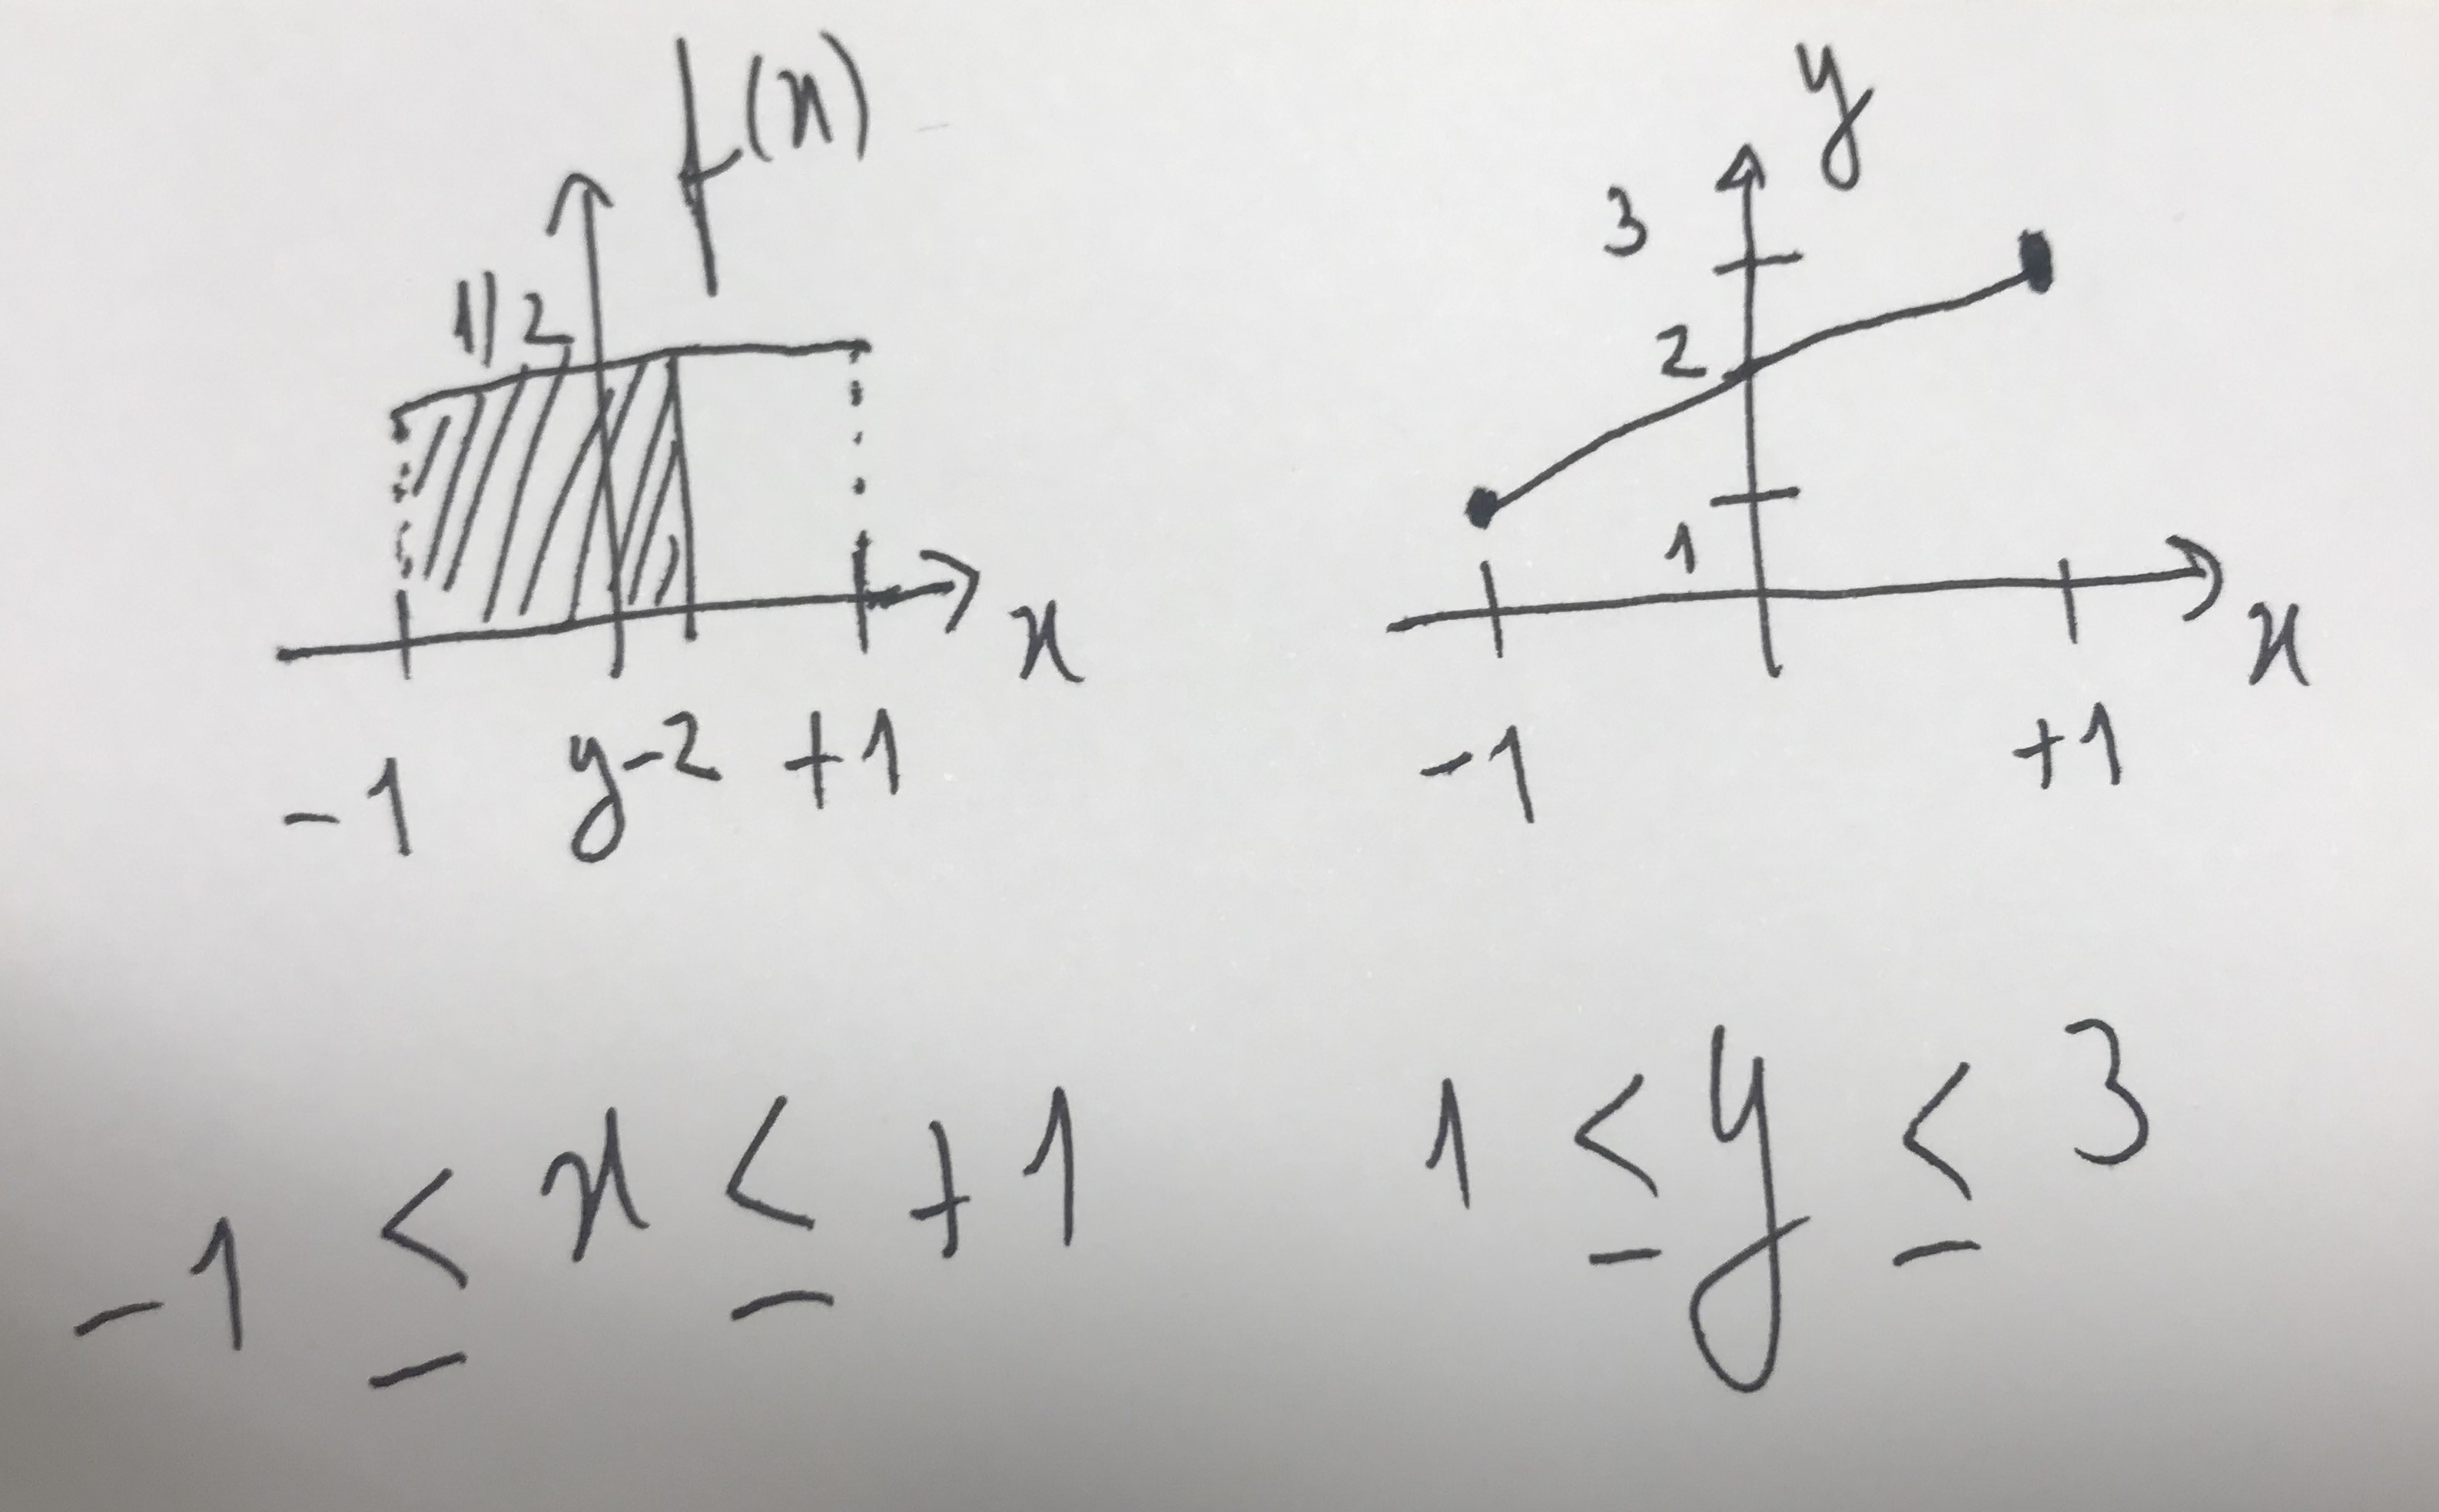 f(x)
1/2
x
-1 y-2 +1
y
3
2
1
x
-1 +1
-1 ≤ x ≤ +1
1 ≤ y ≤ 3